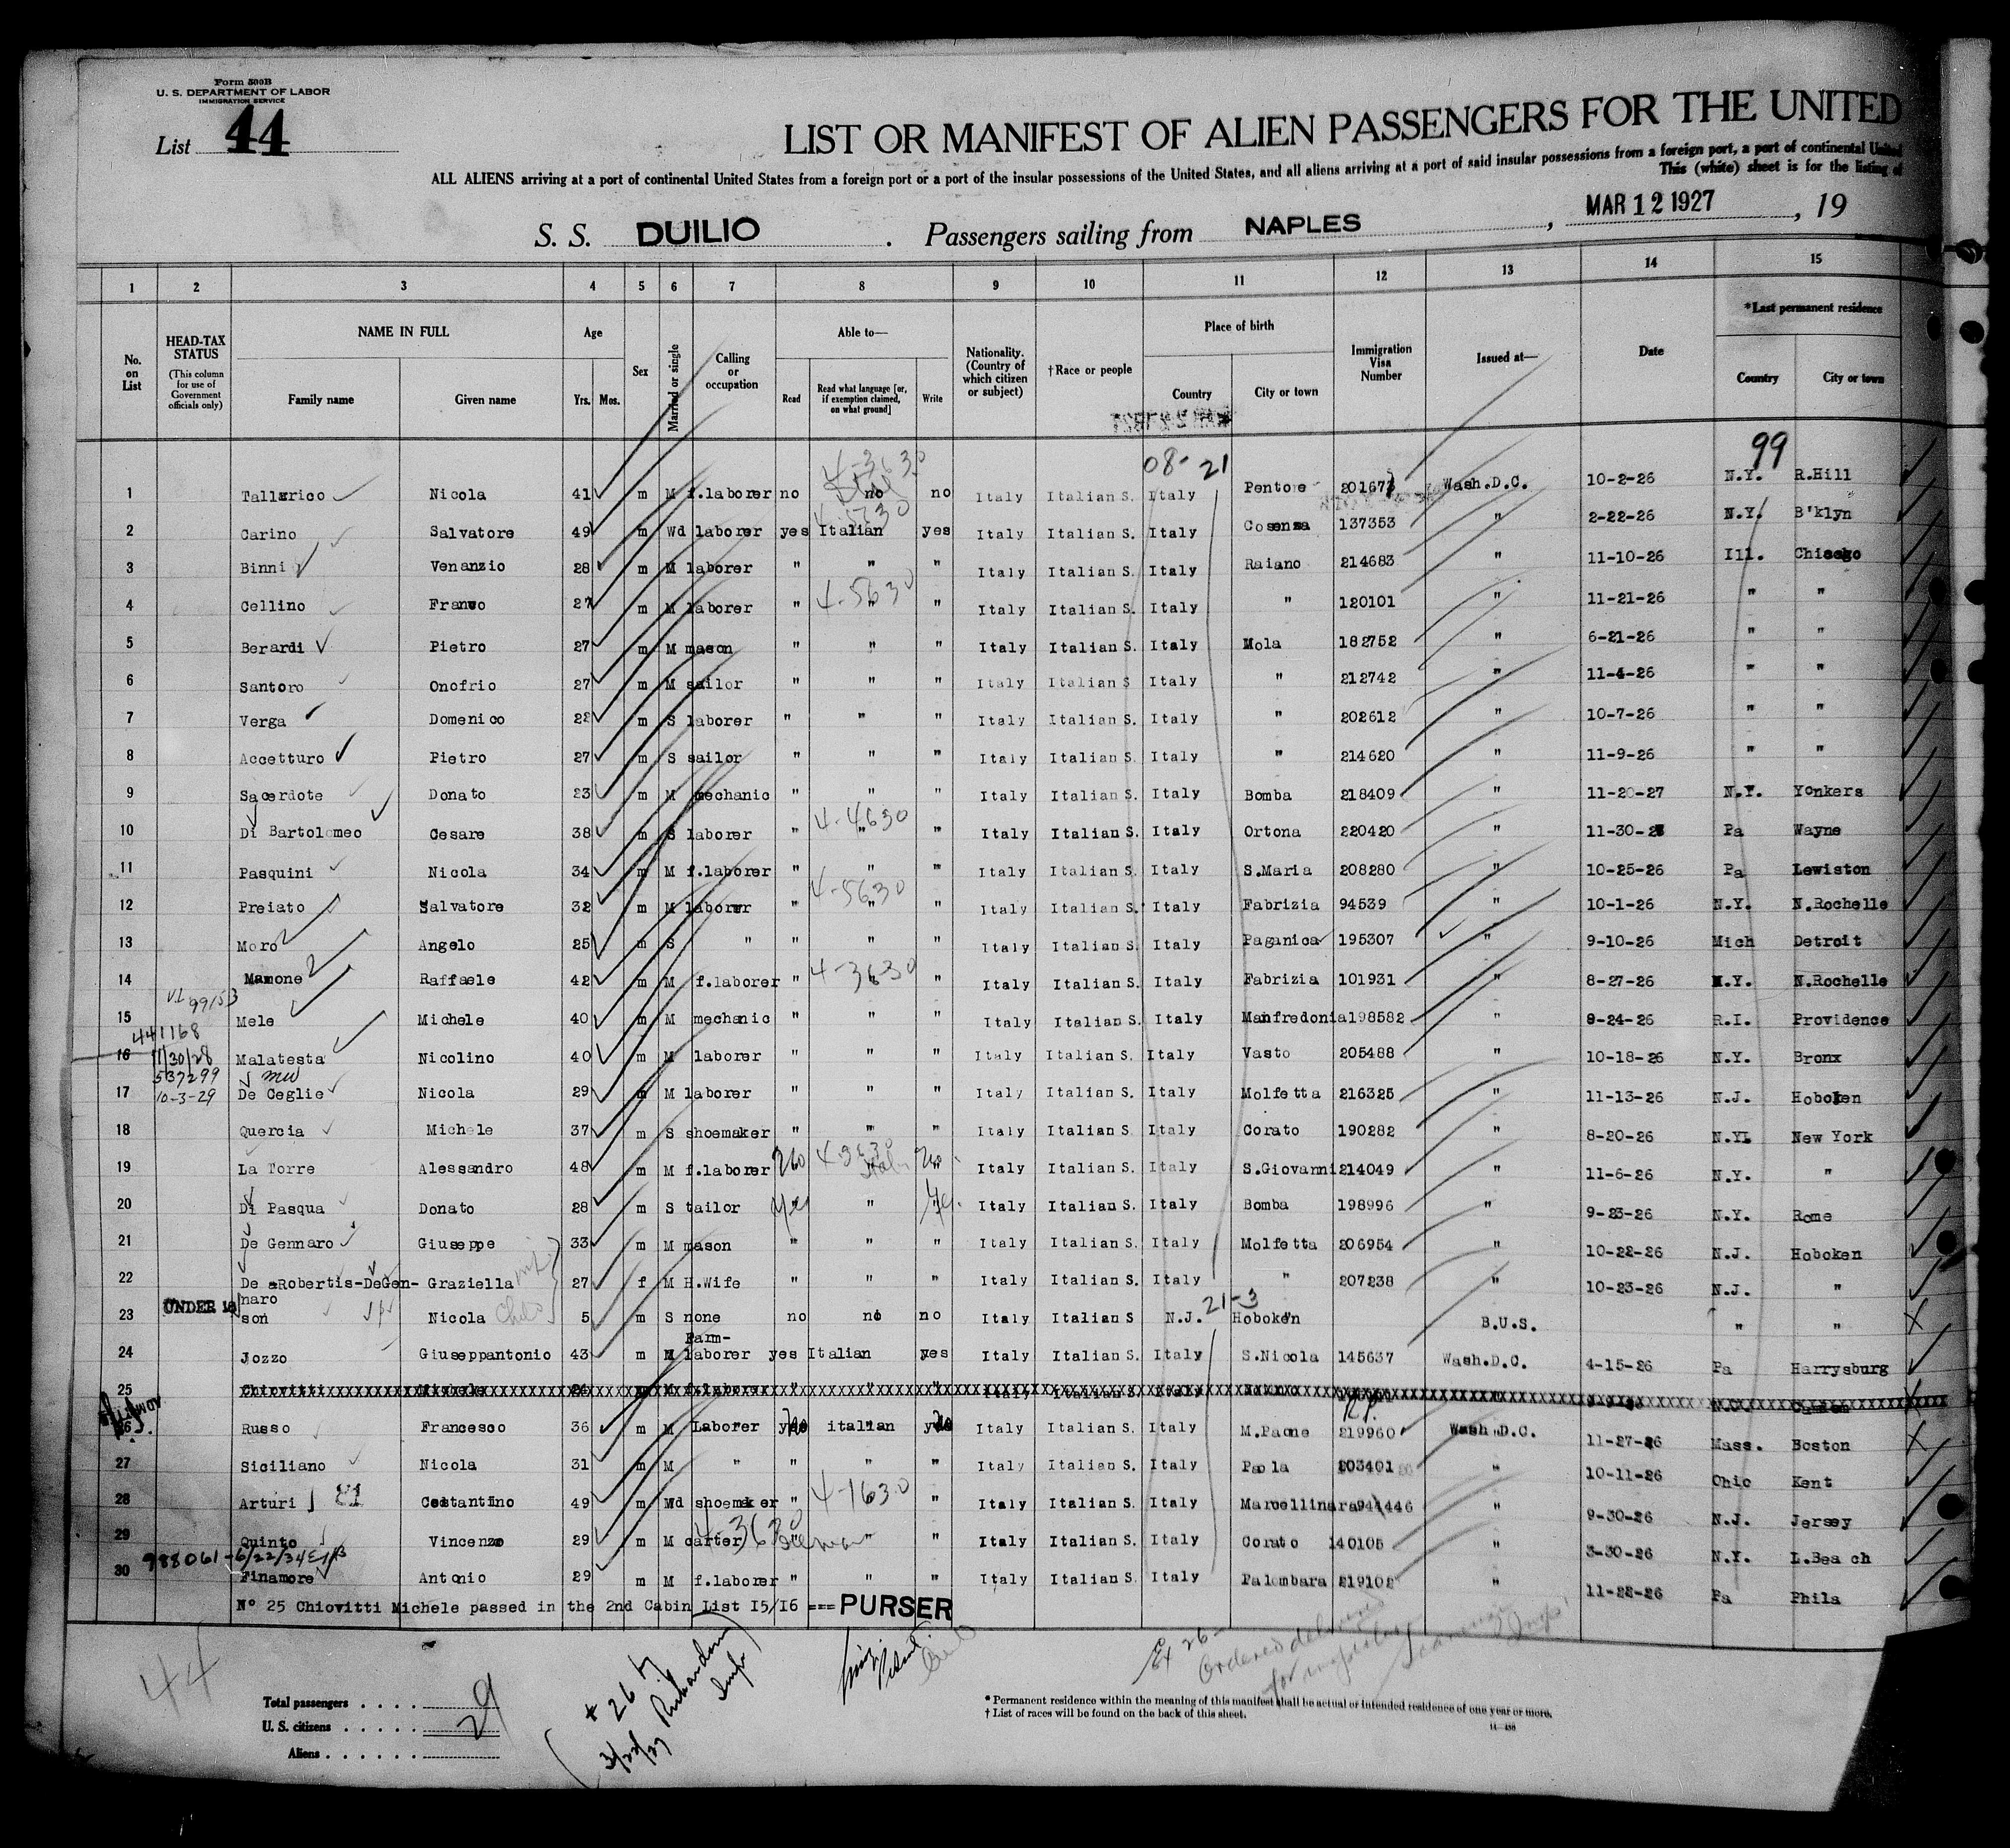 Form 500B
U. S. DEPARTMENT OF LABOR
IMMIGRATION SERVICE
List 44
LIST OR MANIFEST OF ALIEN PASSENGERS FOR THE UNITED
ALL ALIENS arriving at a port of continental United States from a foreign port or a port of the insular possessions of the United States, and all aliens arriving at a port of said insular possessions from a foreign port, a port of continental United
This (white) sheet is for the listing of
S. S. DUILIO . Passengers sailing from NAPLES , MAR 12 1927 , 19
1 2 3 4 5 6 7 8 9 10 11 12 13 14 15
No. on List
HEAD-TAX STATUS
(This column for use of Government officials only)
NAME IN FULL
Family name Given name
Age
Yrs. Mos.
Sex
Married or single
Calling or occupation
Able to—
Read Read what language [or, if exemption claimed, on what ground] Write
Nationality. (Country of which citizen or subject)
†Race or people
Place of birth
Country City or town
Immigration Visa Number
Issued at—
Date
*Last permanent residence
Country City or town
4-3630 08-21 99
1 Tallarico Nicola 41 m M f.laborer no no no Italy Italian S. Italy Pentone 201673 Wash.D.C. 10-2-26 N.Y. R.Hill
2 Carino Salvatore 49 m Wd laborer yes Italian yes Italy Italian S. Italy Cosenza 137353 " 2-22-26 N.Y. B'klyn
3 Binni Venanzio 28 m M laborer " " " Italy Italian S. Italy Raiano 214683 " 11-10-26 Ill. Chicago
4 Cellino Franco 27 m M laborer " 4-5630 " " Italy Italian S. Italy " 120101 " 11-21-26 " "
5 Berardi Pietro 27 m M mason " " " Italy Italian S. Italy Mola 182752 " 6-21-26 " "
6 Santoro Onofrio 27 m M sailor " " " Italy Italian S Italy " 212742 " 11-4-26 " "
7 Verga Domenico 22 m S laborer " " " Italy Italian S. Italy " 202612 " 10-7-26 " "
8 Accetturo Pietro 27 m S sailor " " " Italy Italian S. Italy " 214620 " 11-9-26 " "
9 Sacerdote Donato 23 m M mechanic " " " Italy Italian S. Italy Bomba 218409 " 11-20-27 N.Y. Yonkers
10 Di Bartolomeo Cesare 38 m S laborer " 4-4630 " " Italy Italian S. Italy Ortona 220420 " 11-30- Pa Wayne
11 Pasquini Nicola 34 m M f.laborer " " " Italy Italian S. Italy S.Maria 208280 " 10-25-26 Pa Lewiston
12 Preiato Salvatore 32 m M laborer " 4-5630 " " Italy Italian S. Italy Fabrizia 94539 " 10-1-26 N.Y. N.Rochelle
13 Moro Angelo 25 m S " " " " Italy Italian S. Italy Paganica 195307 " 9-10-26 Mich Detroit
14 Mamone Raffaele 42 m M f.laborer " 4-3630 " " Italy Italian S. Italy Fabrizia 101931 " 8-27-26 N.Y. N.Rochelle
15 Mele Michele 40 m M mechanic " " " Italy Italian S. Italy Manfredonia 198582 " 8-24-26 R.I. Providence
441168
16 11/30/28 Malatesta Nicolino 40 m M laborer " " " Italy Italian S. Italy Vasto 205488 " 10-18-26 N.Y. Bronx
537299
17 10-3-29 De Ceglie Nicola 29 m M laborer " " " Italy Italian S. Italy Molfetta 216325 " 11-13-26 N.J. Hoboken
18 Quercia Michele 37 m S shoemaker " " " Italy Italian S. Italy Corato 190282 " 8-20-26 N.Y. New York
19 La Torre Alessandro 48 m M f.laborer no no Italy Italian S. Italy S.Giovanni 214049 " 11-6-26 N.Y. "
20 Di Pasqua Donato 28 m S tailor yes " Italy Italian S. Italy Bomba 198996 " 9-23-26 N.Y. Rome
21 De Gennaro Giuseppe 33 m M mason " " " Italy Italian S. Italy Molfetta 206954 " 10-22-26 N.J. Hoboken
22 De Robertis-DeGen- Graziella 27 f M H.Wife " " " Italy Italian S. Italy " 207238 " 10-23-26 N.J. "
naro 21-3
UNDER 16
23 son Nicola Child 5 m S none no no no Italy Italian S N.J. Hoboken B.U.S. " "
Farm-
24 Jozzo Giuseppantonio 43 m M laborer yes Italian yes Italy Italian S. Italy S.Nicola 145637 Wash.D.C. 4-15-26 Pa Harrysburg
25 Chiovitti Michele
26 Russo Francesco 36 m M Laborer yes italian Italy Italian S. Italy M.Paone 219960 Wash.D.C. 11-27-26 Mass. Boston
27 Siciliano Nicola 31 m M " " " " Italy Italian S. Italy Paola 203401 " 10-11-26 Ohio Kent
28 Arturi Costantino 49 m Wd shoemaker " 4-1630 " Italy Italian S. Italy Marcellinara 944446 " 9-30-26 N.J. Jersey
29 Quinto Vincenzo 29 m M carter 4-3630 " " Italy Italian S. Italy Corato 140105 " 3-30-26 N.Y. L.Beach
988061-6/22/34
30 Finamore Antonio 29 m M f.laborer " " " Italy Italian S. Italy Palombara 219102 " 11-22-26 Pa Phila
N° 25 Chiovitti Michele passed in the 2nd Cabin List I5/I6 === PURSER
44
# 26
3/22/27
Richardson
Insp
Ex 26-
Ordered
Total passengers . . . . 29
U. S. citizens . . . . .
Aliens . . . . . .
* Permanent residence within the meaning of this manifest shall be actual or intended residence of one year or more.
† List of races will be found on the back of this sheet.